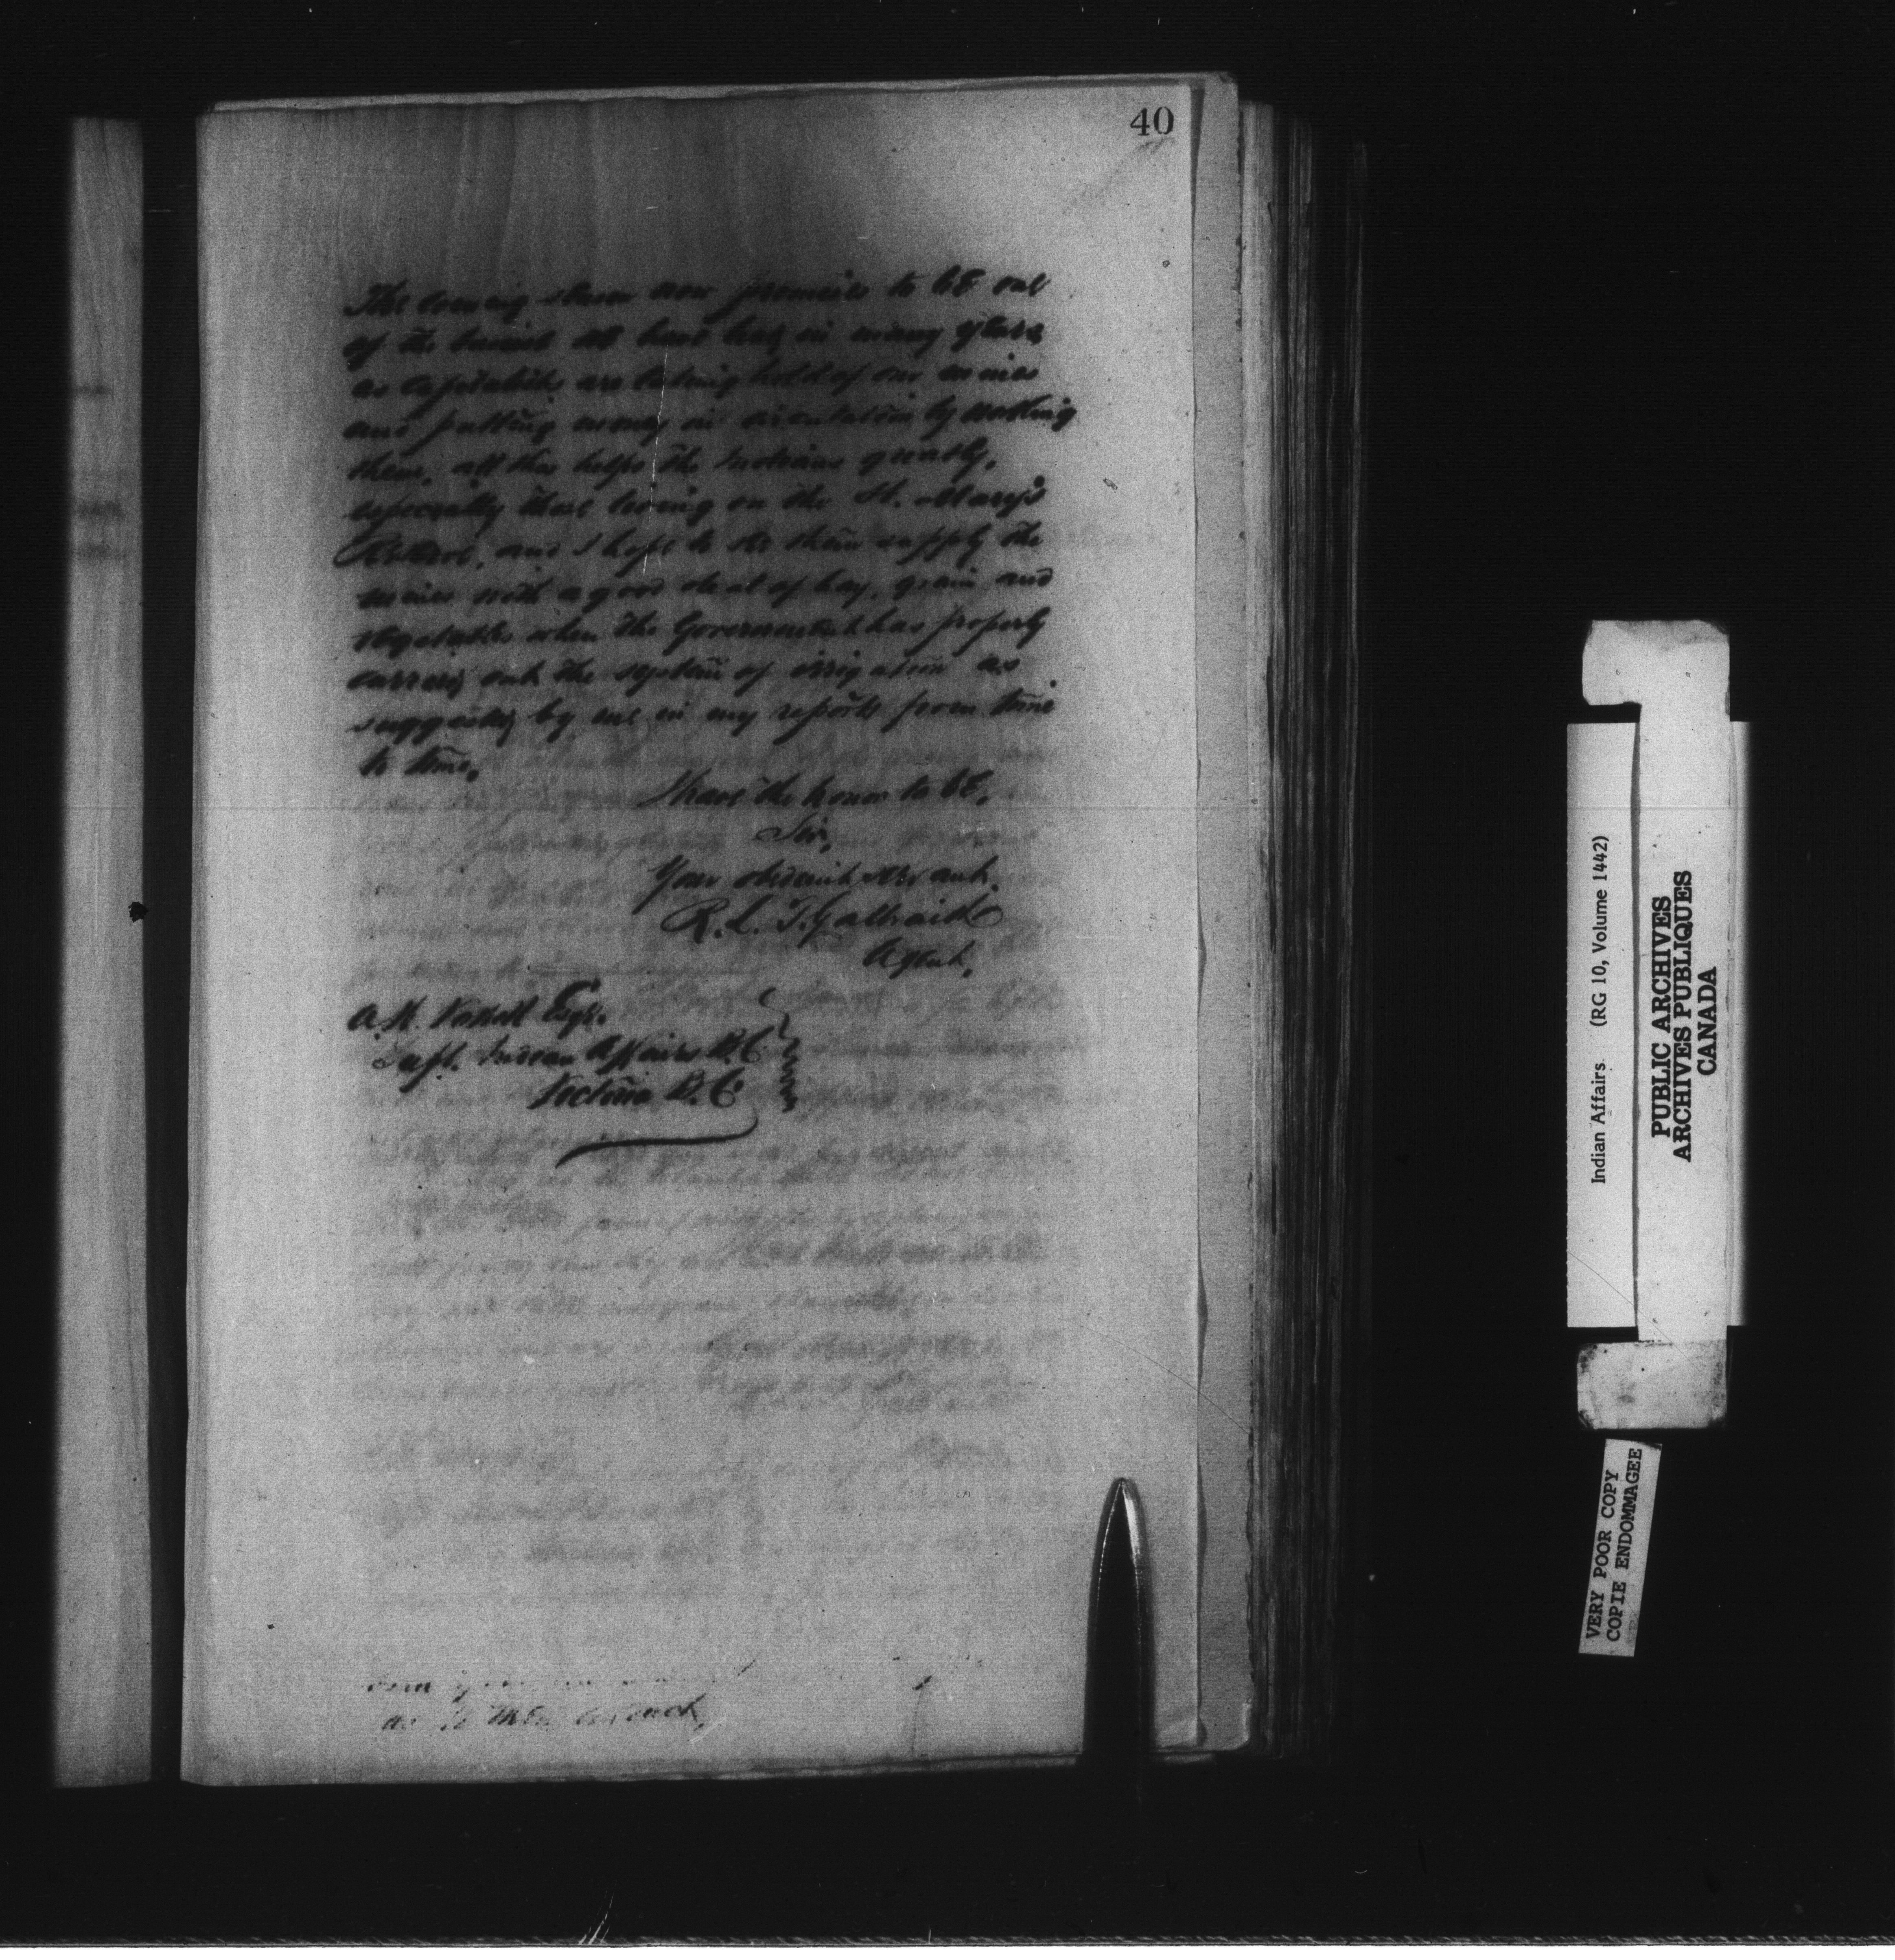 40
The coming season now promises to be one
of the busiest we have had in many years
as capitalists are taking hold of our mines
and putting money in circulation by working
them, all this helps the Indians greatly,
especially those living on the St. Mary's
Reserve, and I hope to see them supply the
mines with a good deal of hay, grain and
vegetables when the Government has properly
carried out the system of irrigation as
suggested by me in my reports from time
to time.
I have the honor to be,
Sir,
Your obedient servant.
R. L. T. Galbraith
Agent.
A. W. Vowell Esqr.
Supt. Indian Affairs B.C.
Victoria B.C.
as to their
Indian Affairs (RG 10, Volume 1442)
PUBLIC ARCHIVES
ARCHIVES PUBLIQUES
CANADA
VERY POOR COPY
COPIE ENDOMMAGEE